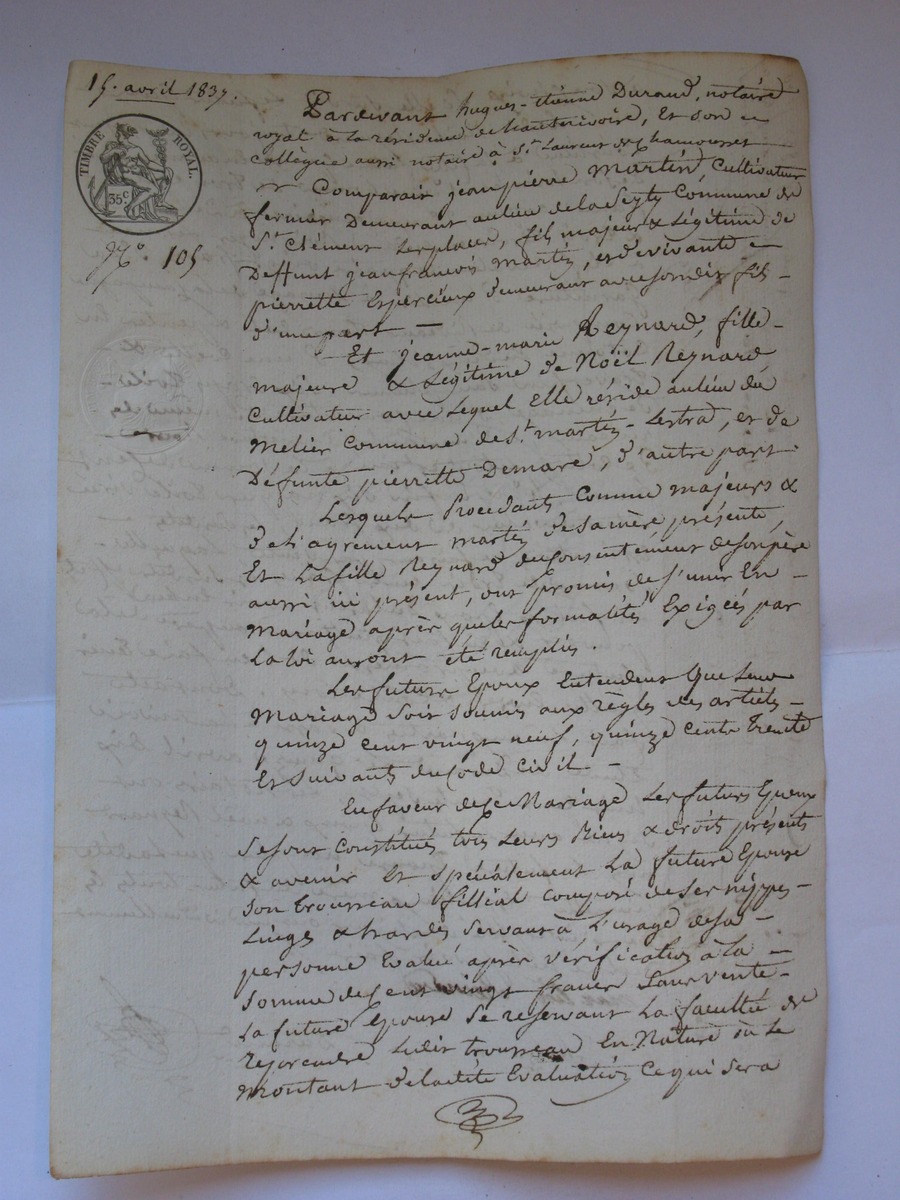 15. avril 1837.
TIMBRE ROYAL.
35c
N.° 105
Pardevant hugues-étienne Durand, notaire
royal à la résidence de hauterivoire, Et son
collègue aussi notaire à St. Laurent de Chamousset
Comparait jean pierre Martin, Cultivateur
fermier Demeurant au lieu de la Commune de
St. Clément Les places, fils majeur & Légitime de
Deffunt jean francois martin, et de vivante
pierrette Esperieux demeurant avec son dit fils
d'une part —
Et jeanne-marie Reynard, fille
majeure & Légitime de Noël Reynard
Cultivateur avec Lequel Elle réside au lieu du
Melier Commune de St. martin-Lestra, et de
Défunte pierrette Demare, d'autre part
Lesquels Procédants Comme majeurs &
de l'agrement martin de sa mère présente,
Et La fille Reynard du Consentement de son père
aussi ici présent, ont promis de s'unir En
Mariage après que les formalités Exigées par
La loi auront été remplies.
Les future Epoux Entendent Que Leur
Mariage soit soumis aux règles des articles
quinze cent vingt neuf, quinze cents trente
Et suivants du Code Civil —
En faveur de ce Mariage Les futurs Epoux
se sont constitués tous Leurs Biens & droits présents
& avenir Et spécialement La future Epouse
son trousseau fillial composé de ses nippes
Linges & hardes servant à L'usage de sa
personne Evalué après vérification à la
somme de Cent vingt francs sans vente
La future Epouse se reservant La faculté de
reprendre Ledit trousseau En Nature ou Le
montant de la dite Evaluation Ce qui sera